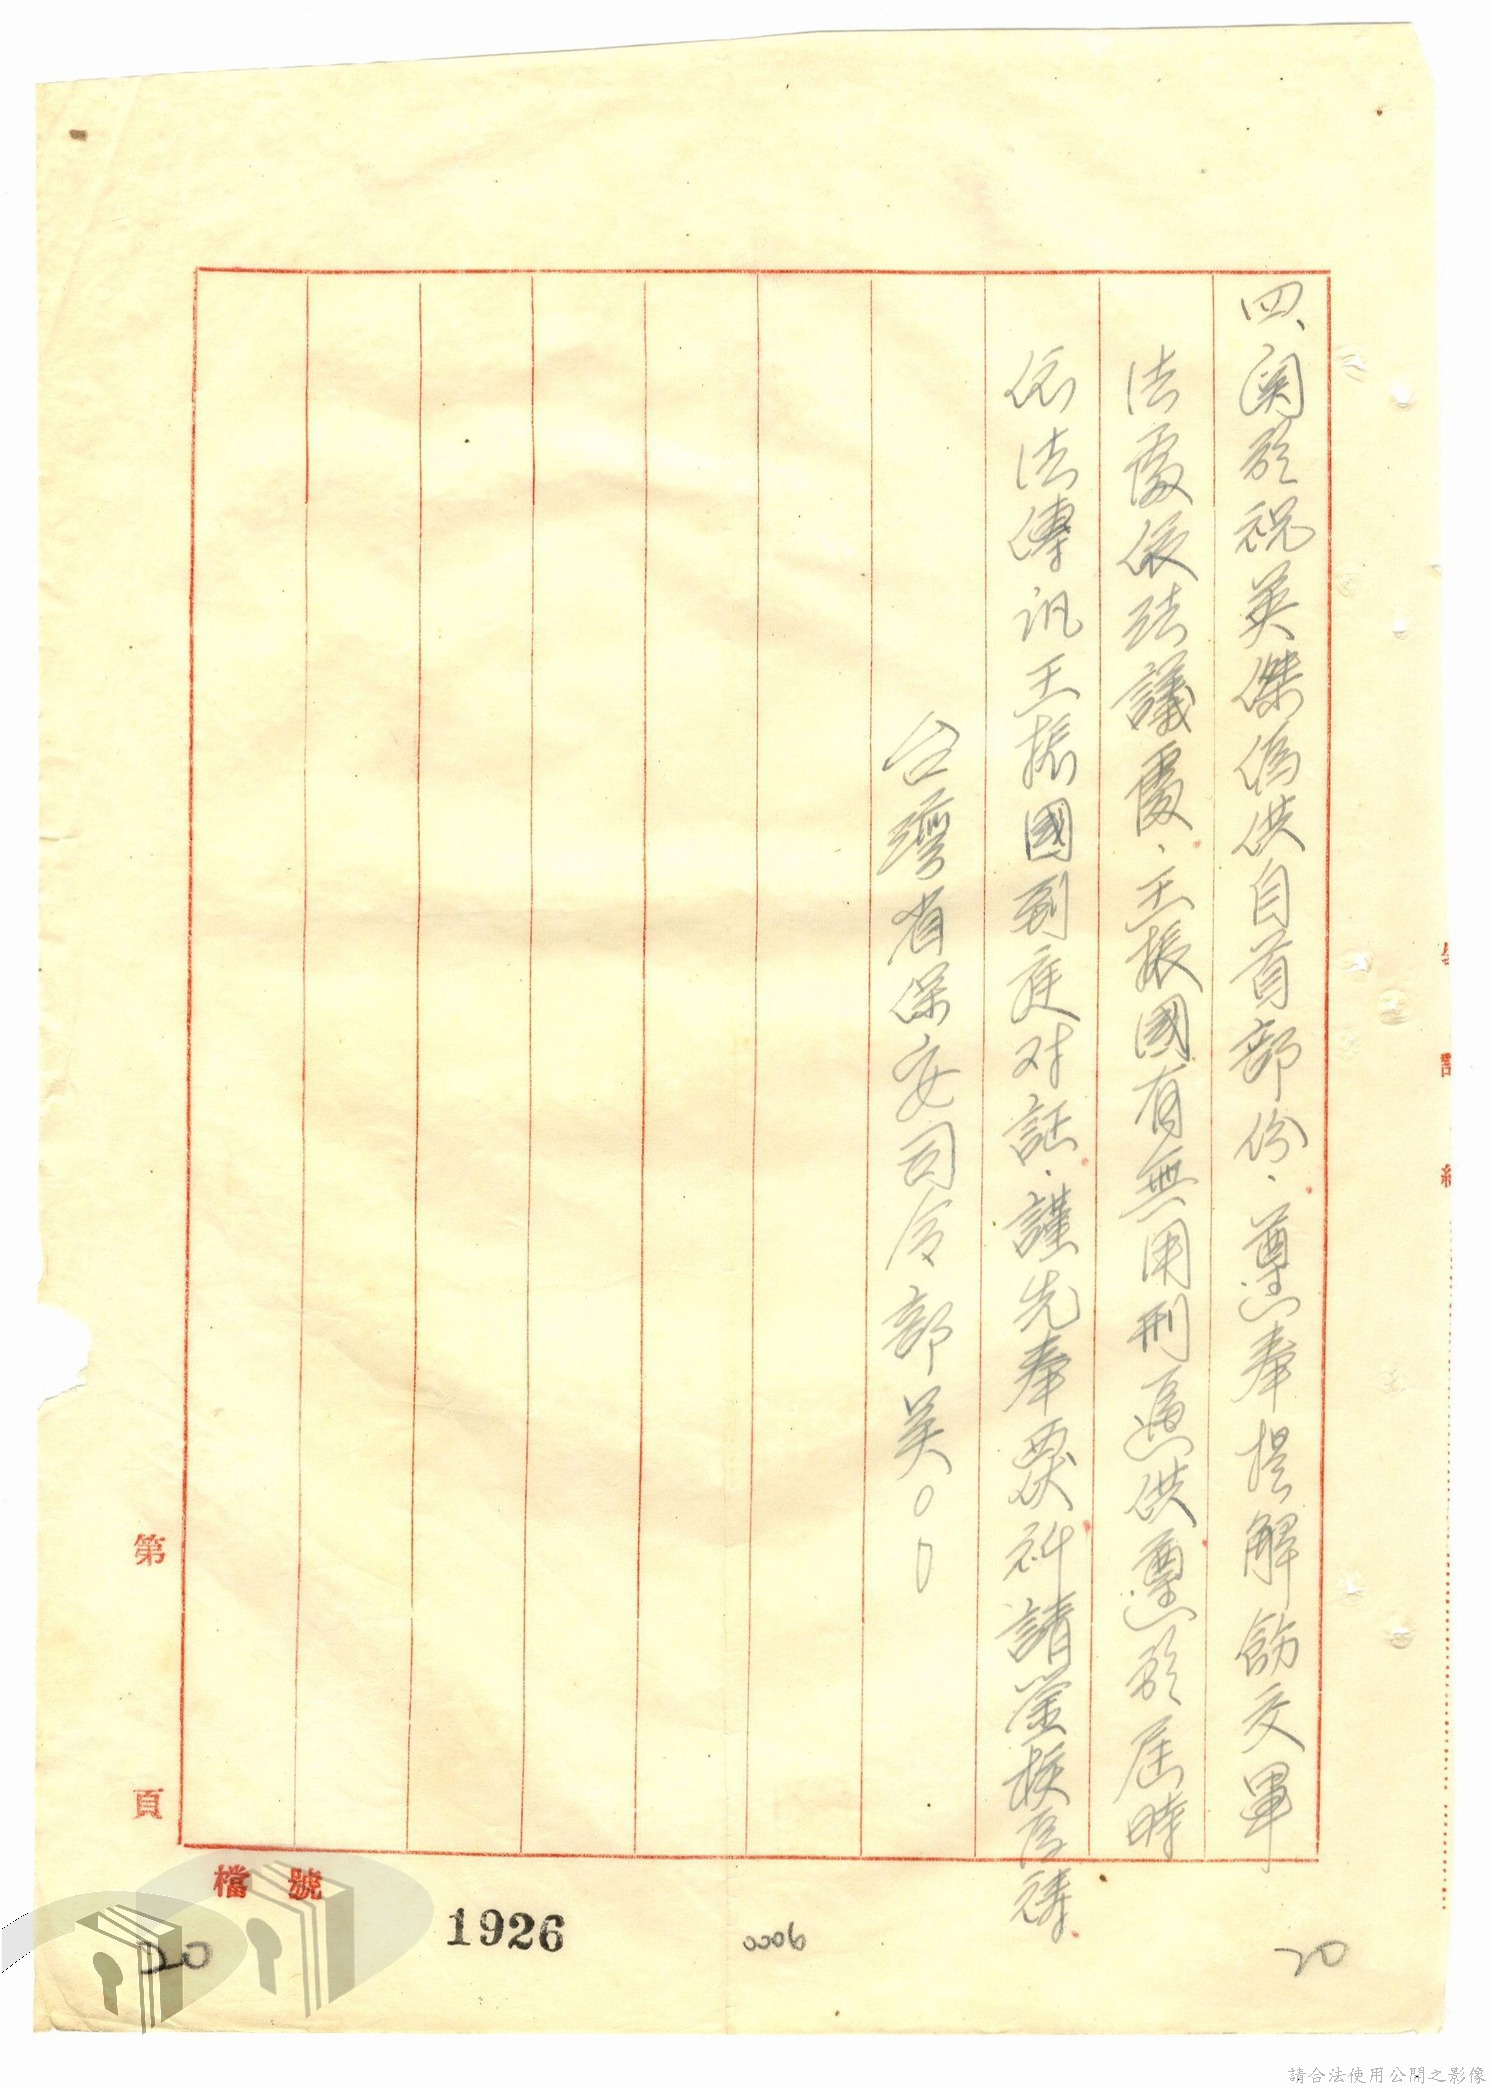 四、関於祝英傑偽供自首部份、遵奉提解飭交軍
法處依法議處、王振國有無用刑逼供遵於屆時
依法傳訊王振國到庭対証、謹先奉覆祈請鑒核為禱
台灣省保安司令部吳○○
第 頁
檔 號
1926
0006
20
20
請合法使用公開之影像